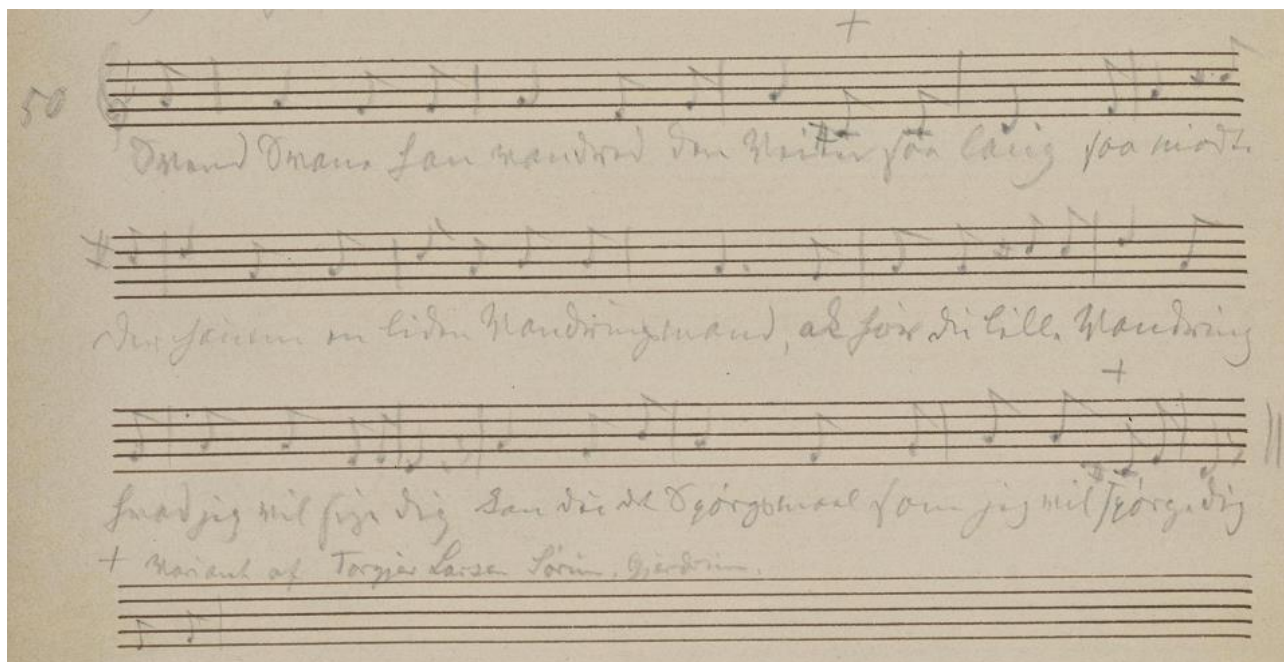 50
Svend Svane han vandred den Veien saa lang saa mødte
der hannem en liden Vandringsmand, ak hør du lille Vandring
hvad jeg vil sige dig kan du det Spörgsmaal som jeg vil spörge dig
+ Variant af Torgjer Larsen